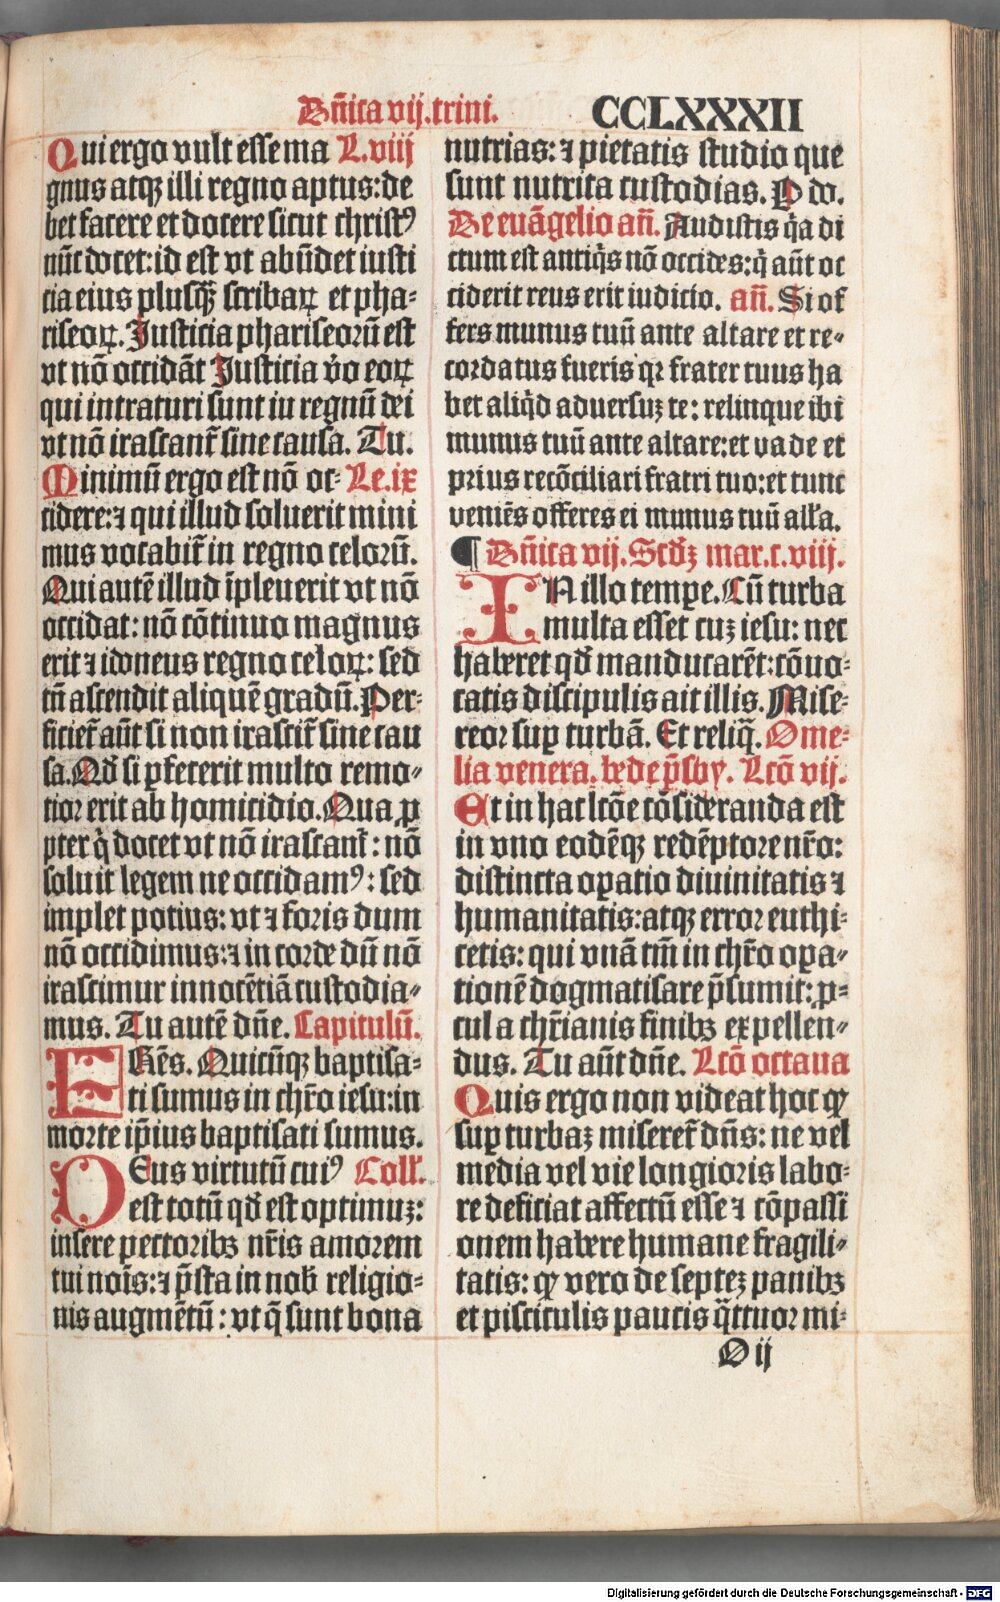 Dñica vij. trini. CCLXXXII
Qui ergo vult esse ma L. viij
gnus atqȝ illi regno aptus: de
bet facere et docere sicut christꝰ
nūc docet: id est vt abūdet iusti
cia eius plusq̄ȝ scribaꝝ et pha⸗
riseoꝝ. Justicia phariseorū est
vt nō occidāt Justicia v̓o eoꝝ
qui intraturi sunt in regnū dei
vt nō irascant᷑ sine causa. Tu.
Minimū ergo est nō oc⸗ Le. ix
cidere: ⁊ qui illud soluerit mini
mus vocabit᷑ in regno celorū.
Qui autē illud īpleuerit vt nō
occidat: nō cōtinuo magnus
erit ⁊ idoneus regno celoꝝ: sed
tn̄ ascendit aliquē gradū. Per⸗
ficiet᷑ aūt si non irascit᷑ sine cau
sa. Qd̓ si ꝑfecerit multo remo⸗
tior erit ab homicidio. Qua ꝓ
pter q̇ docet vt nō irascant᷑: nō
soluit legem ne occidamꝰ: sed
implet potius: vt ⁊ foris dum
nō occidimus: ⁊ in corde dū nō
irascimur innocētiā custodia⸗
mus. Tu autē dn̄e. Capitulū.
FRēs. Quicūqȝ baptisa⸗
ti sumus in chr̄o iesu: in
morte ip̄ius baptisati sumus.
DEus virtutū cuiꝰ Coll᷑.
est totū qd̓ est optimuȝ:
insere pectoribȝ nr̄is amorem
tui noīs: ⁊ p̄sta in nob̓ religio⸗
nis augmētū: vt q̄ sunt bona
nutrias: ⁊ pietatis studio que
sunt nutrita custodias. P do.
De euāgelio añ. Audistis q̇a di
ctum est antiq̇s nō occides: q̇ aūt oc
ciderit reus erit iudicio. añ. Si of
fers munus tuū ante altare et re⸗
cordatus fueris qr frater tuus ha
bet aliq̇d aduersuȝ te: relinque ibi
munus tuū ante altare: et vade et
prius recōciliari fratri tuo: et tunc
veniēs offeres ei munus tuū all̓a.
¶ Dñica vij. Scd̓ȝ mar. c. viij.
IN illo tempe. Cū turba
multa esset cuȝ iesu: nec
haberet qd̓ manducarēt: cōuo⸗
catis discipulis ait illis. Mise⸗
reor suꝑ turbā. Et reliq̄. Ome⸗
lia venera. bede p̄sby. Lctō vij.
Et in hac lcōe cōsideranda est
in vno eodēqȝ redēptore nr̄o:
distincta oꝑatio diuinitatis ⁊
humanitatis: atqȝ error euthi⸗
cetis: qui vnā tm̄ in chr̄o oꝑa⸗
tionē dogmatisare p̄sumit: ꝓ⸗
cul a chr̄ianis finibȝ expellen⸗
dus. Tu aūt dn̄e. Lctō octaua
Quis ergo non videat hoc ꝙ
suꝑ turbaȝ miseret᷑ dn̄s: ne vel
media vel vie longioris labo⸗
re deficiat affectū esse ⁊ cōpassi
onem habere humane fragili⸗
tatis: ꝙ vero de septeȝ panibȝ
et pisciculis paucis q̄ttuor mi⸗
O ij
Digitalisierung gefördert durch die Deutsche Forschungsgemeinschaft - DFG